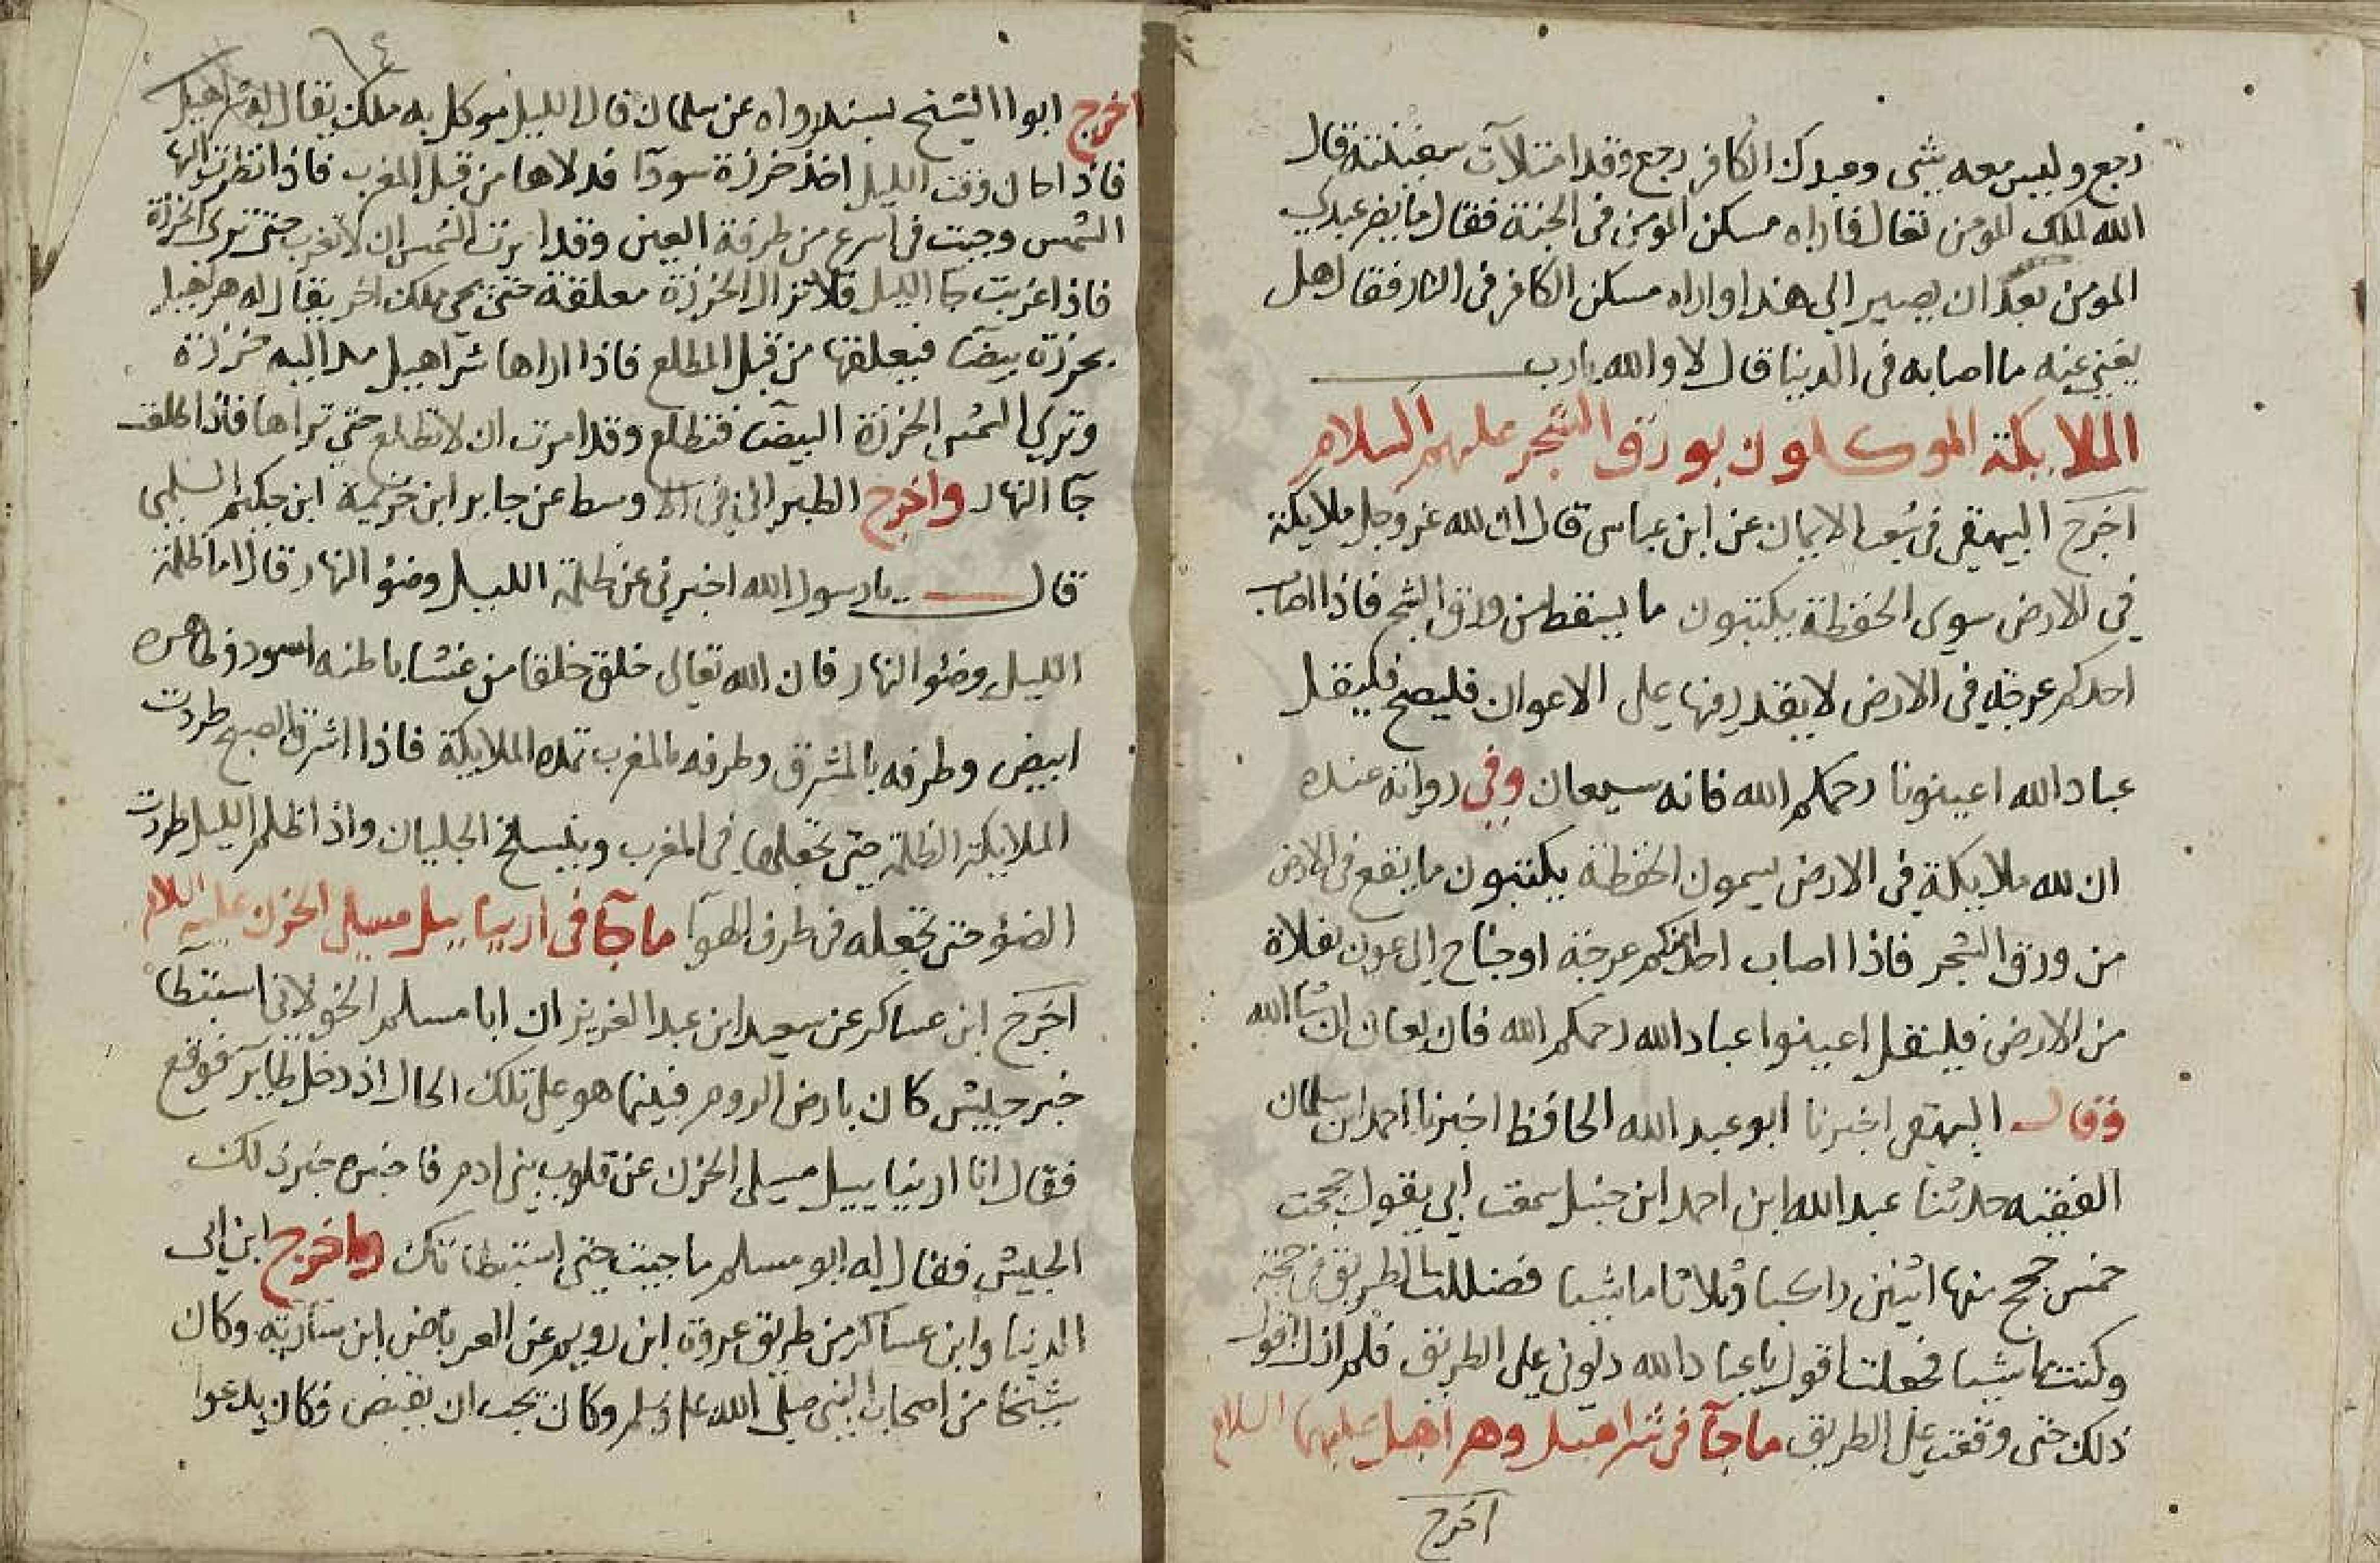 رجع وليس معه شي وعبدك الكافر رجع وقد امتلات سفينته قال
الله لملك المومن تعال فاراه مسكن المومن في الجنة فقال ما يضر عبدي
المومن بعد ان يصير الي هذا واراه مسكن الكافر في النار فقال هل
يغني عنه ما اصابه في الدنيا قال لا والله يارب
الملايكة الموكلون بورق الشجر عليهم السلام
اخرج البيهقي في شعب الايمان عن ابن عباس قال ان لله عز وجل ملايكة
في الارض سوى الحفظة يكتبون ما يسقط من ورق الشجر فاذا اصاب
احدكم عرجة في الارض لا يقدر فيها علي الاعوان فليصح فليقل
عباد الله اعينونا رحمكم الله فانه سيعان وفي رواية عنده
ان لله ملايكة في الارض يسمون الحفظة يكتبون ما يقع في الارض
من ورق الشجر فاذا اصاب احدكم عرجة او احتاج الي عون بفلاة
من الارض فليقل اعينوا عباد الله رحمكم الله فان يعان ان شا الله
وقال البيهقي اخبرنا ابو عبد الله الحافظ اخبرنا احمد ابن سلمان
الفقيه حدثنا عبد الله ابن احمد ابن حنبل سمعت ابي يقول حججت
خمس حجج منها اثنين راكبا وثلاثا ماشيا فضللت الطريق في حجة
وكنت ماشيا فجعلت اقول يا عباد الله دلوني علي الطريق فلم ازل اقول
ذلك حتى وقفت علي الطريق ما جآ في شراهيل وهراهيل عليهما السلام
اخرج
٦٤
اخرج ابوا الشيخ بسند رواه عن سلمان قال الليل موكل به ملك يقال له شراهيل
فاذا كان وقت الليل اخذ خرزة سودآ فدلاها من قبل المغرب فاذا نظرت اليها
الشمس وجبت في اسرع من طرفة العين وقد امرت الشمس ان لا تغرب حتى ترى الخرزة
فاذا غربت جا الليل فلا تزال الخرزة معلقة حتى يجي ملك اخر يقال له هراهيل
بخرزة بيضآ فيعلقها من قبل المطلع فاذا اراها شراهيل مد اليه خرزة
وترى الشمس الخرزة البيضآ فتطلع وقد امرت ان لا تطلع حتى تراها فاذا طلعت
جآ النهار واخرج الطبراني في الاوسط عن جابر ابن خزيمة ابن حكيم السلمي
قال يا رسول الله اخبرني عن ظلمة الليل وضؤ النهار قال اما ظلمة
الليل وضؤ النهار فان الله تعالى خلق خلقا من غشا باطنه اسود وظاهره
ابيض وطرفه بالمشرق وطرفه بالمغرب تمده الملايكة فاذا اشرق الصبح طردت
الملايكة الظلمة حتى تجعلها في المغرب وينسلخ الجلبان واذا ظلم الليل طردت
الضؤ حتى تجعله في طرف الهوآ ما جآ في ارتياييل مسلي الحزن عليه السلام
اخرج ابن عساكر عن سعيد ابن عبد العزيز ان ابا مسلم الخولاني استبطا
خبر جيش كان بارض الروم فبينما هو علي تلك الحال اذ دخل طاير فوقع
فقال انا ارتياييل مسلي الحزن عن قلوب بني ادم فاخبره خبر ذلك
الجيش فقال له ابو مسلم ما جيت حتى استبطاتك واخرج ابن ابى
الدنيا وابن عساكر من طريق عروة ابن رويم عن العرباض ابن سارية وكان
شيخا من اصحاب النبي صلى الله عليه وسلم وكان يحب ان يقبض فكان يدعوا